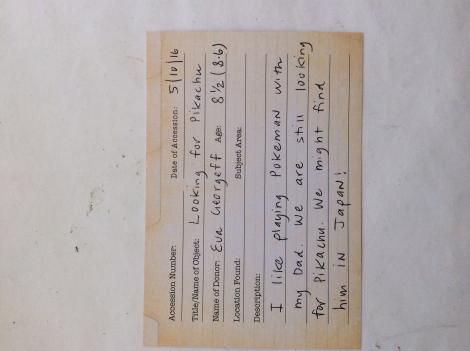 Accession Number: Date of Accession: 5/10/16
Title/Name of Object: Looking for Pikachu
Name of Donor: Eva Georgeff Age: 8½ (8.6)
Location Found: Subject Area:
Description:
I like playing Pokeman with
my Dad. We are still looking
for Pikachu. We might find
him in Japan!